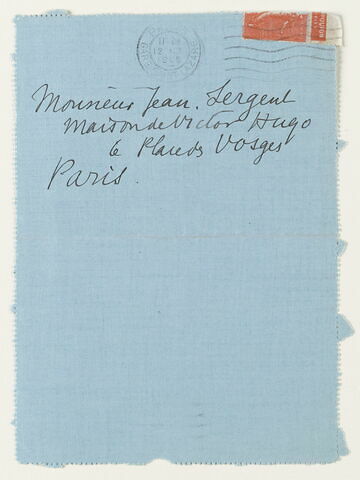 Monsieur Jean. Sergent
Maison de Victor Hugo
6 Place des Vosges
Paris.